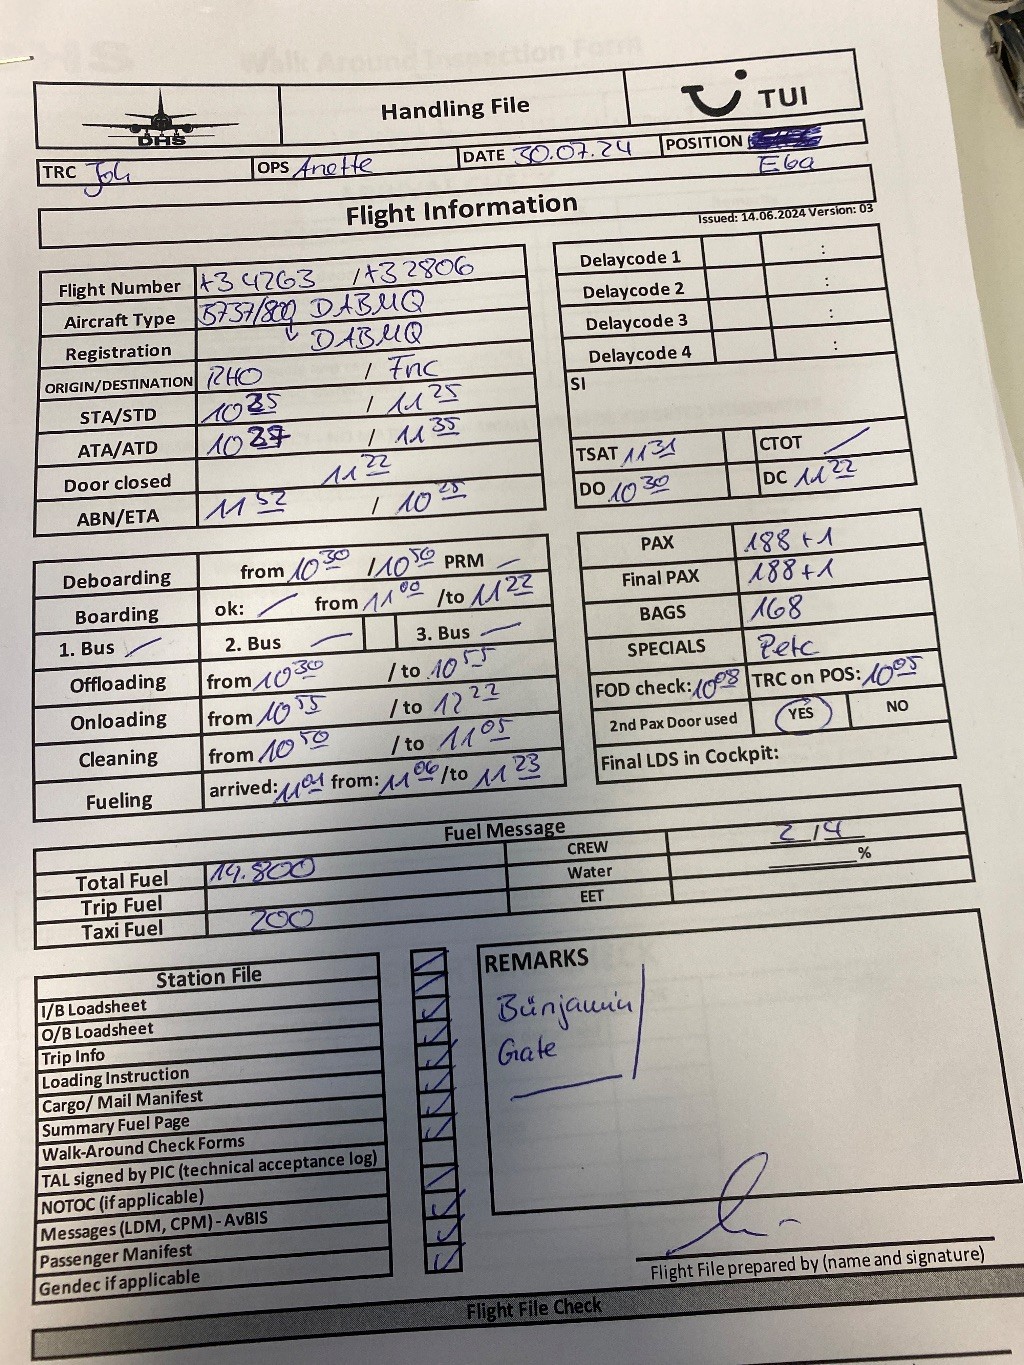 DHS
Handling File
TUI
TRC Joh OPS Anette DATE 30.07.24 POSITION
E60
Flight Information
Issued: 14.06.2024 Version: 03
Flight Number X3 4263 / X3 2806
Aircraft Type B737/800 DABMQ
Registration DABMQ
ORIGIN/DESTINATION RHO / FNC
STA/STD 10 35 / 11 25
ATA/ATD 10 27 / 11 35
Door closed 11 22
ABN/ETA 11 52 / 10 28
Delaycode 1 :
Delaycode 2 :
Delaycode 3 :
Delaycode 4 :
SI
TSAT 11 31 CTOT /
DO 10 30 DC 11 22
Deboarding from 10 30 / 10 50 PRM
Boarding ok: / from 11 00 /to 11 22
1. Bus 2. Bus 3. Bus
Offloading from 10 30 / to 10 55
Onloading from 10 55 / to 12 22
Cleaning from 10 50 / to 11 05
Fueling arrived: 11 01 from: 11 06 /to 11 23
PAX 188 + 1
Final PAX 188 + 1
BAGS 168
SPECIALS Petc
FOD check: 10 08 TRC on POS: 10 05
2nd Pax Door used YES NO
Final LDS in Cockpit:
Fuel Message
Total Fuel 14.800 CREW 2 / 4
Trip Fuel Water %
Taxi Fuel 200 EET
Station File
I/B Loadsheet
O/B Loadsheet
Trip Info
Loading Instruction
Cargo/ Mail Manifest
Summary Fuel Page
Walk-Around Check Forms
TAL signed by PIC (technical acceptance log)
NOTOC (if applicable)
Messages (LDM, CPM) - AvBIS
Passenger Manifest
Gendec if applicable
REMARKS
Bünjamin
Gate
Flight File prepared by (name and signature)
Flight File Check